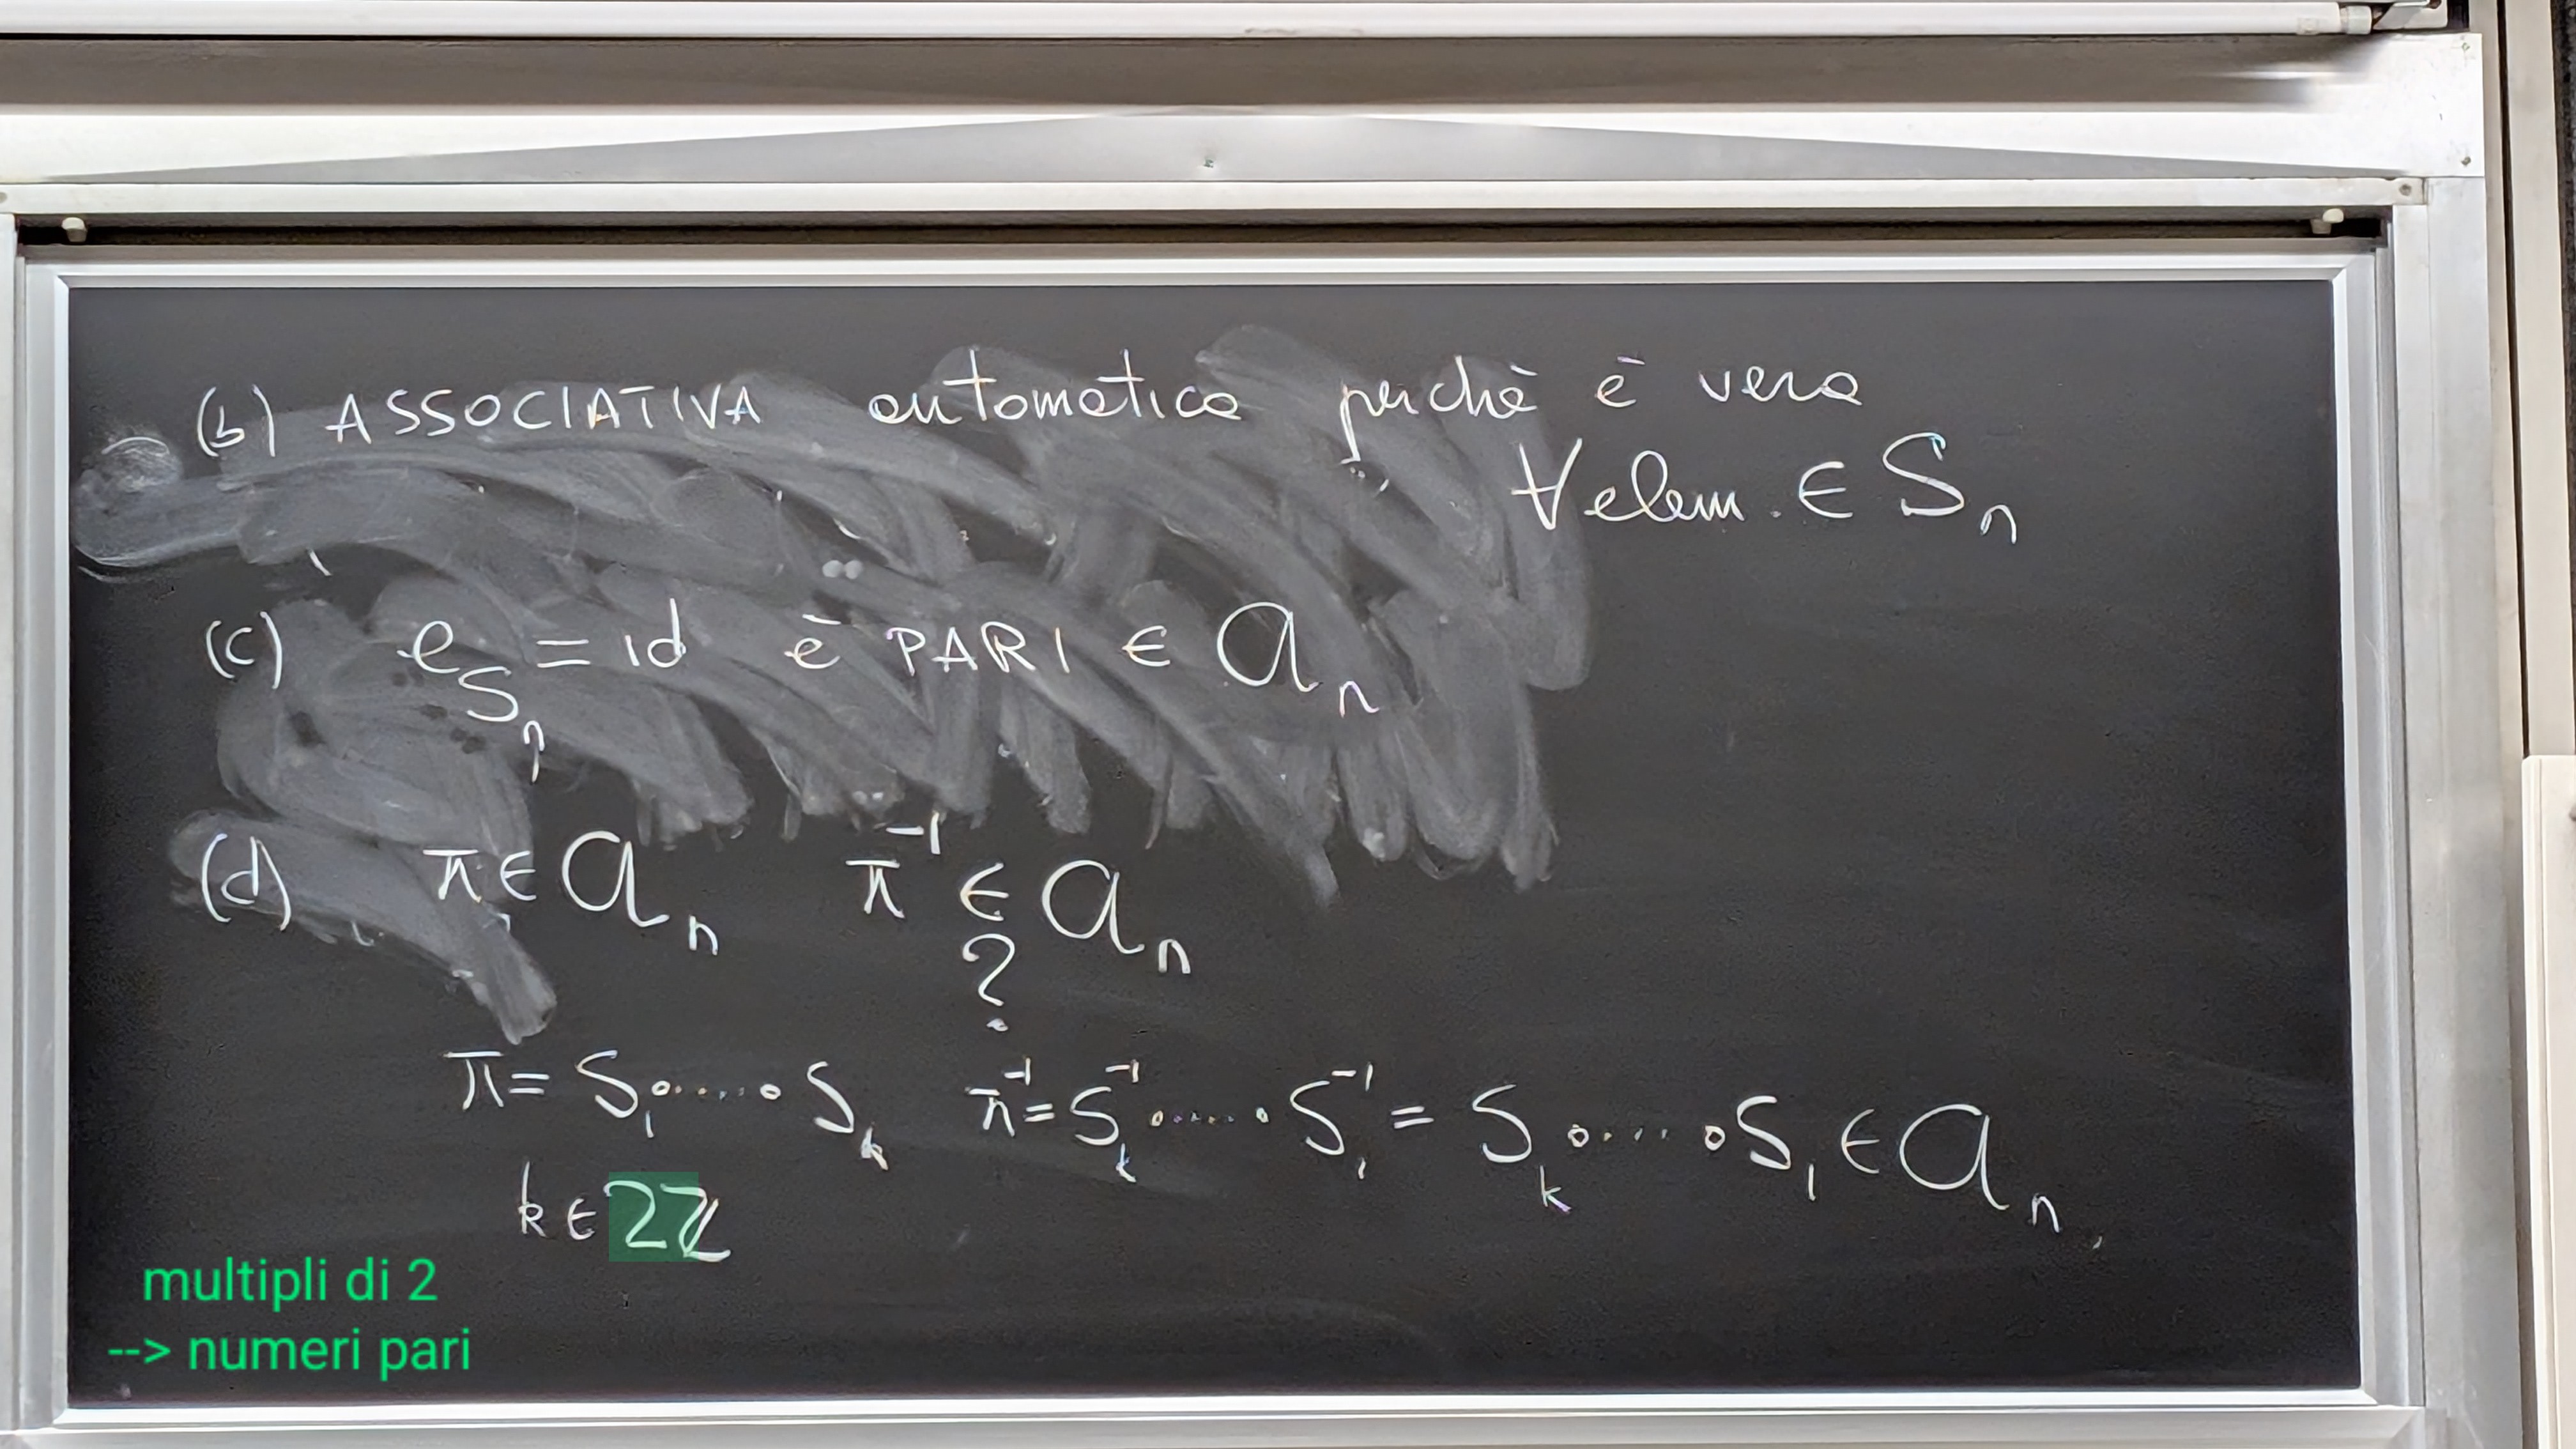 (b) ASSOCIATIVA automatica perchè è vera
∀ elem. ∈ Sₙ
(c) e_Sₙ = id è PARI ∈ 𝒜ₙ
(d) π ∈ 𝒜ₙ π⁻¹ ∈ 𝒜ₙ
?
π = S₁∘.....∘Sₖ π⁻¹ = Sₖ⁻¹∘.....∘S₁⁻¹ = Sₖ∘....∘S₁ ∈ 𝒜ₙ,
k ∈ 2ℤ
multipli di 2
--> numeri pari